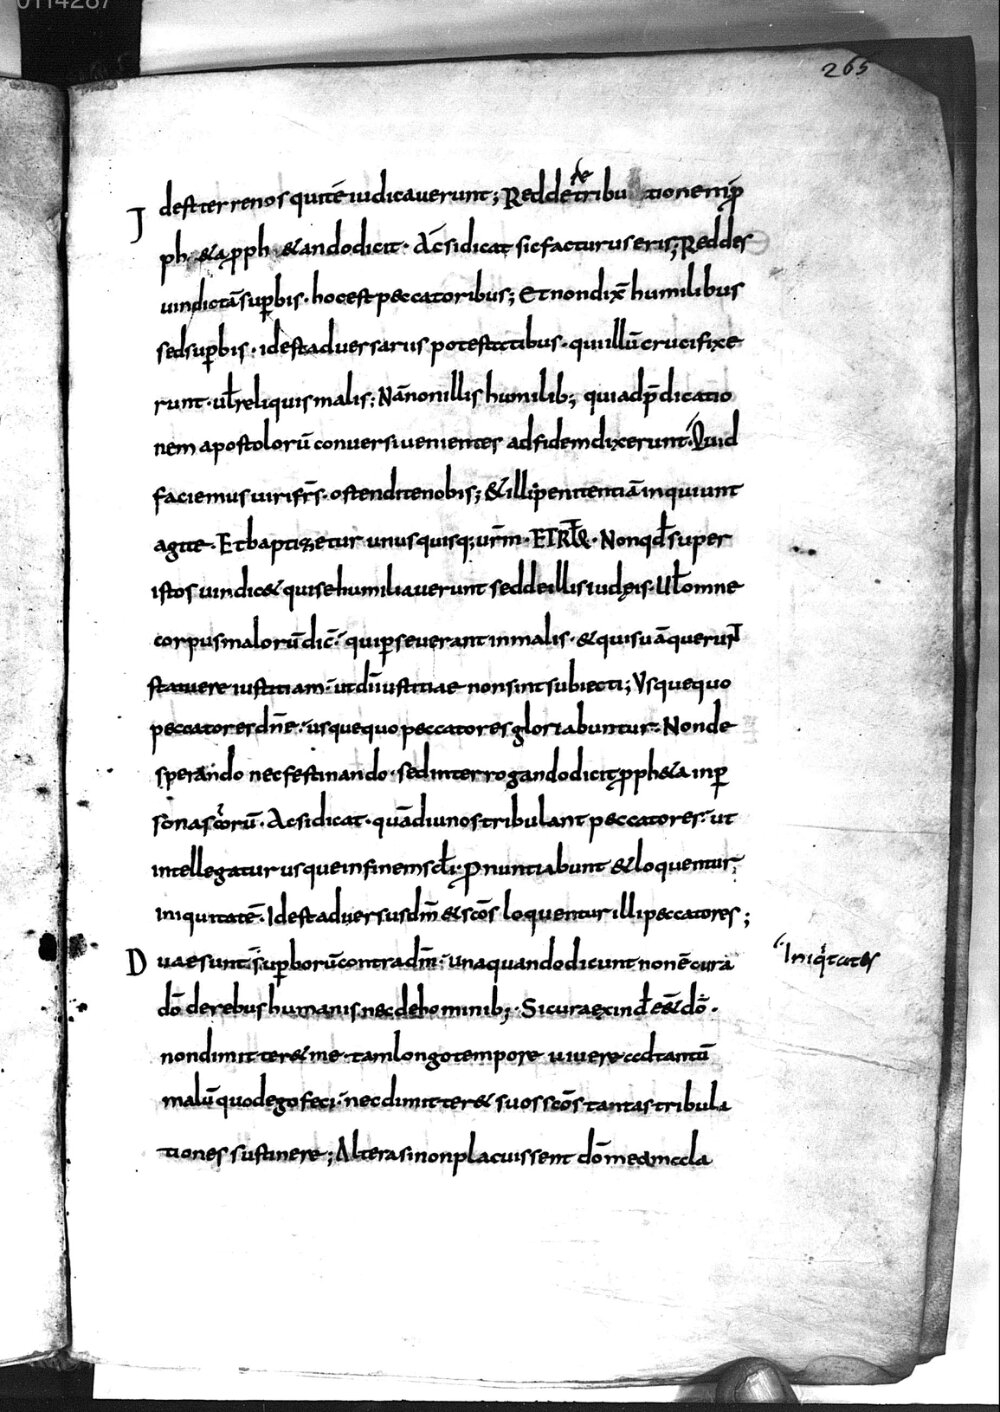 0114287
265
Idest terrenos qui tē iudicaverunt; Redde tribu re tionem īp
ph&a pph &ando dicit · Ac si dicat sic facturus eris; Reddes
uindictā supbis · hoc est peccatoribus; Et non dix̄ humilibus
sed supbis · id est adversariis potestatibus · qui illū crucifixe
runt · ut̄ reliquis malis; Nā non illis humilib; qui ad p̄dicatio
nem apostolorū conversi venientes ad fidem dixerunt · Quid
faciemus viri fr̄s · ostendite nobis; & illi penitentiā inquiunt
agite · Et baptizetur unusquisq; ur̄m · ET RƗ& · Non qđ super
istos uindic& qui se humiliaverunt sed de illis iudęis · Uƚ omne
corpus malorū dic̄ · qui pseverant in malis · & qui suā querunT
statuere iustitiam · ut dī iustitiae non sint subiecti; Usquequo
peccatores dn̄e · usquequo peccatores gloriabuntur · Non de
sperando nec festinando · sed interrogando dicit pph&a in p
sona sc̄orū · Ac si dicat · quādiu nos tribulant peccatores · ut
intellegatur usque in finem scƚi · Pronuntiabunt & loquentur
iniquitatē · Id est adversus dm̄ & scōs loquentur illi peccatores;
Duae sunt supborū contra dm̄ · una quando dicunt non ē cura
dō de rebus humanis nec de hominib; · Si cura exinđ eēt dō ·
non dimitteret me tam longo tempore vivere ad tantū
malū quod ego feci · nec dimitter& suos scōs tantas tribula
tiones sustinere; Altera si non placuissent dō mea mala
Iniqitates